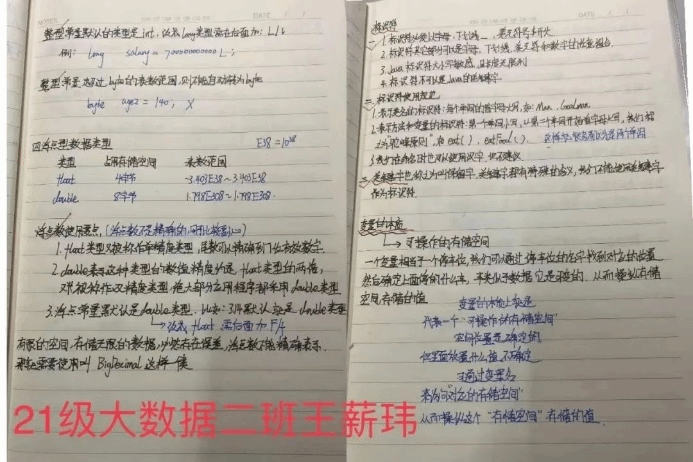 整型常量默认的类型是int,后面Long类型需在后面加:L/l
例: long salary = 70000000000L;
整型常量超过byte的表数范围,则不能自动转为byte
byte age2 = 140; X
四 浮点型数据类型 E38 = 10³⁸
类型 占用存储空间 表数范围
float 4字节 -3.403E38~3.403E38
double 8字节 -1.798E308~1.798E308
1. float类型又被称作单精度类型,尾数可以精确到7位有效数字
2. double表示这种类型的数值精度约是float类型的两倍,
又被称作双精度类型,绝大部分应用程序都采用double类型
3. 浮点常量默认是double类型,比如:3.14默认就是double类型
float 需后面加 F/f
有限的空间,存储无限的数据,必然存在误差,浮点数不能精确表示,
需要使用叫 BigDecimal 这样一类
21级大数据二班王薪玮
标识符
1. 标识符必须以字母、下划线_、美元符号$开头
2. 标识符其它部分可以是字母、下划线、美元符和数字的任意组合
3. Java标识符大小写敏感,且长度无限制
4. 标识符不可以是Java的关键字
二、标识符使用规范
1. 表示类名的标识符:每个单词的首字母大写,如:Man, GoodMan
2. 表示方法和变量的标识符:第一个单词小写,从第二个单词开始首字母大写,我们称
之为"驼峰原则",如 eat(), eatFood()
3. 我们在命名时也可以使用汉字,但不建议
作为标识符.
变量的本质
→ 可操作的存储空间
一个变量相当于一个停车位,我们可以通过停车位的名字找到对应的位置
然后确定上面停的什么车,车类似于数据
空间存储的值
变量的本质就是
代表一个"可操作的存储空间"
空间位置是确定的
但里面放置什么值不确定
可通过变量名
来访问"对应的存储空间"
从而操纵这个"存储空间"存储的值.